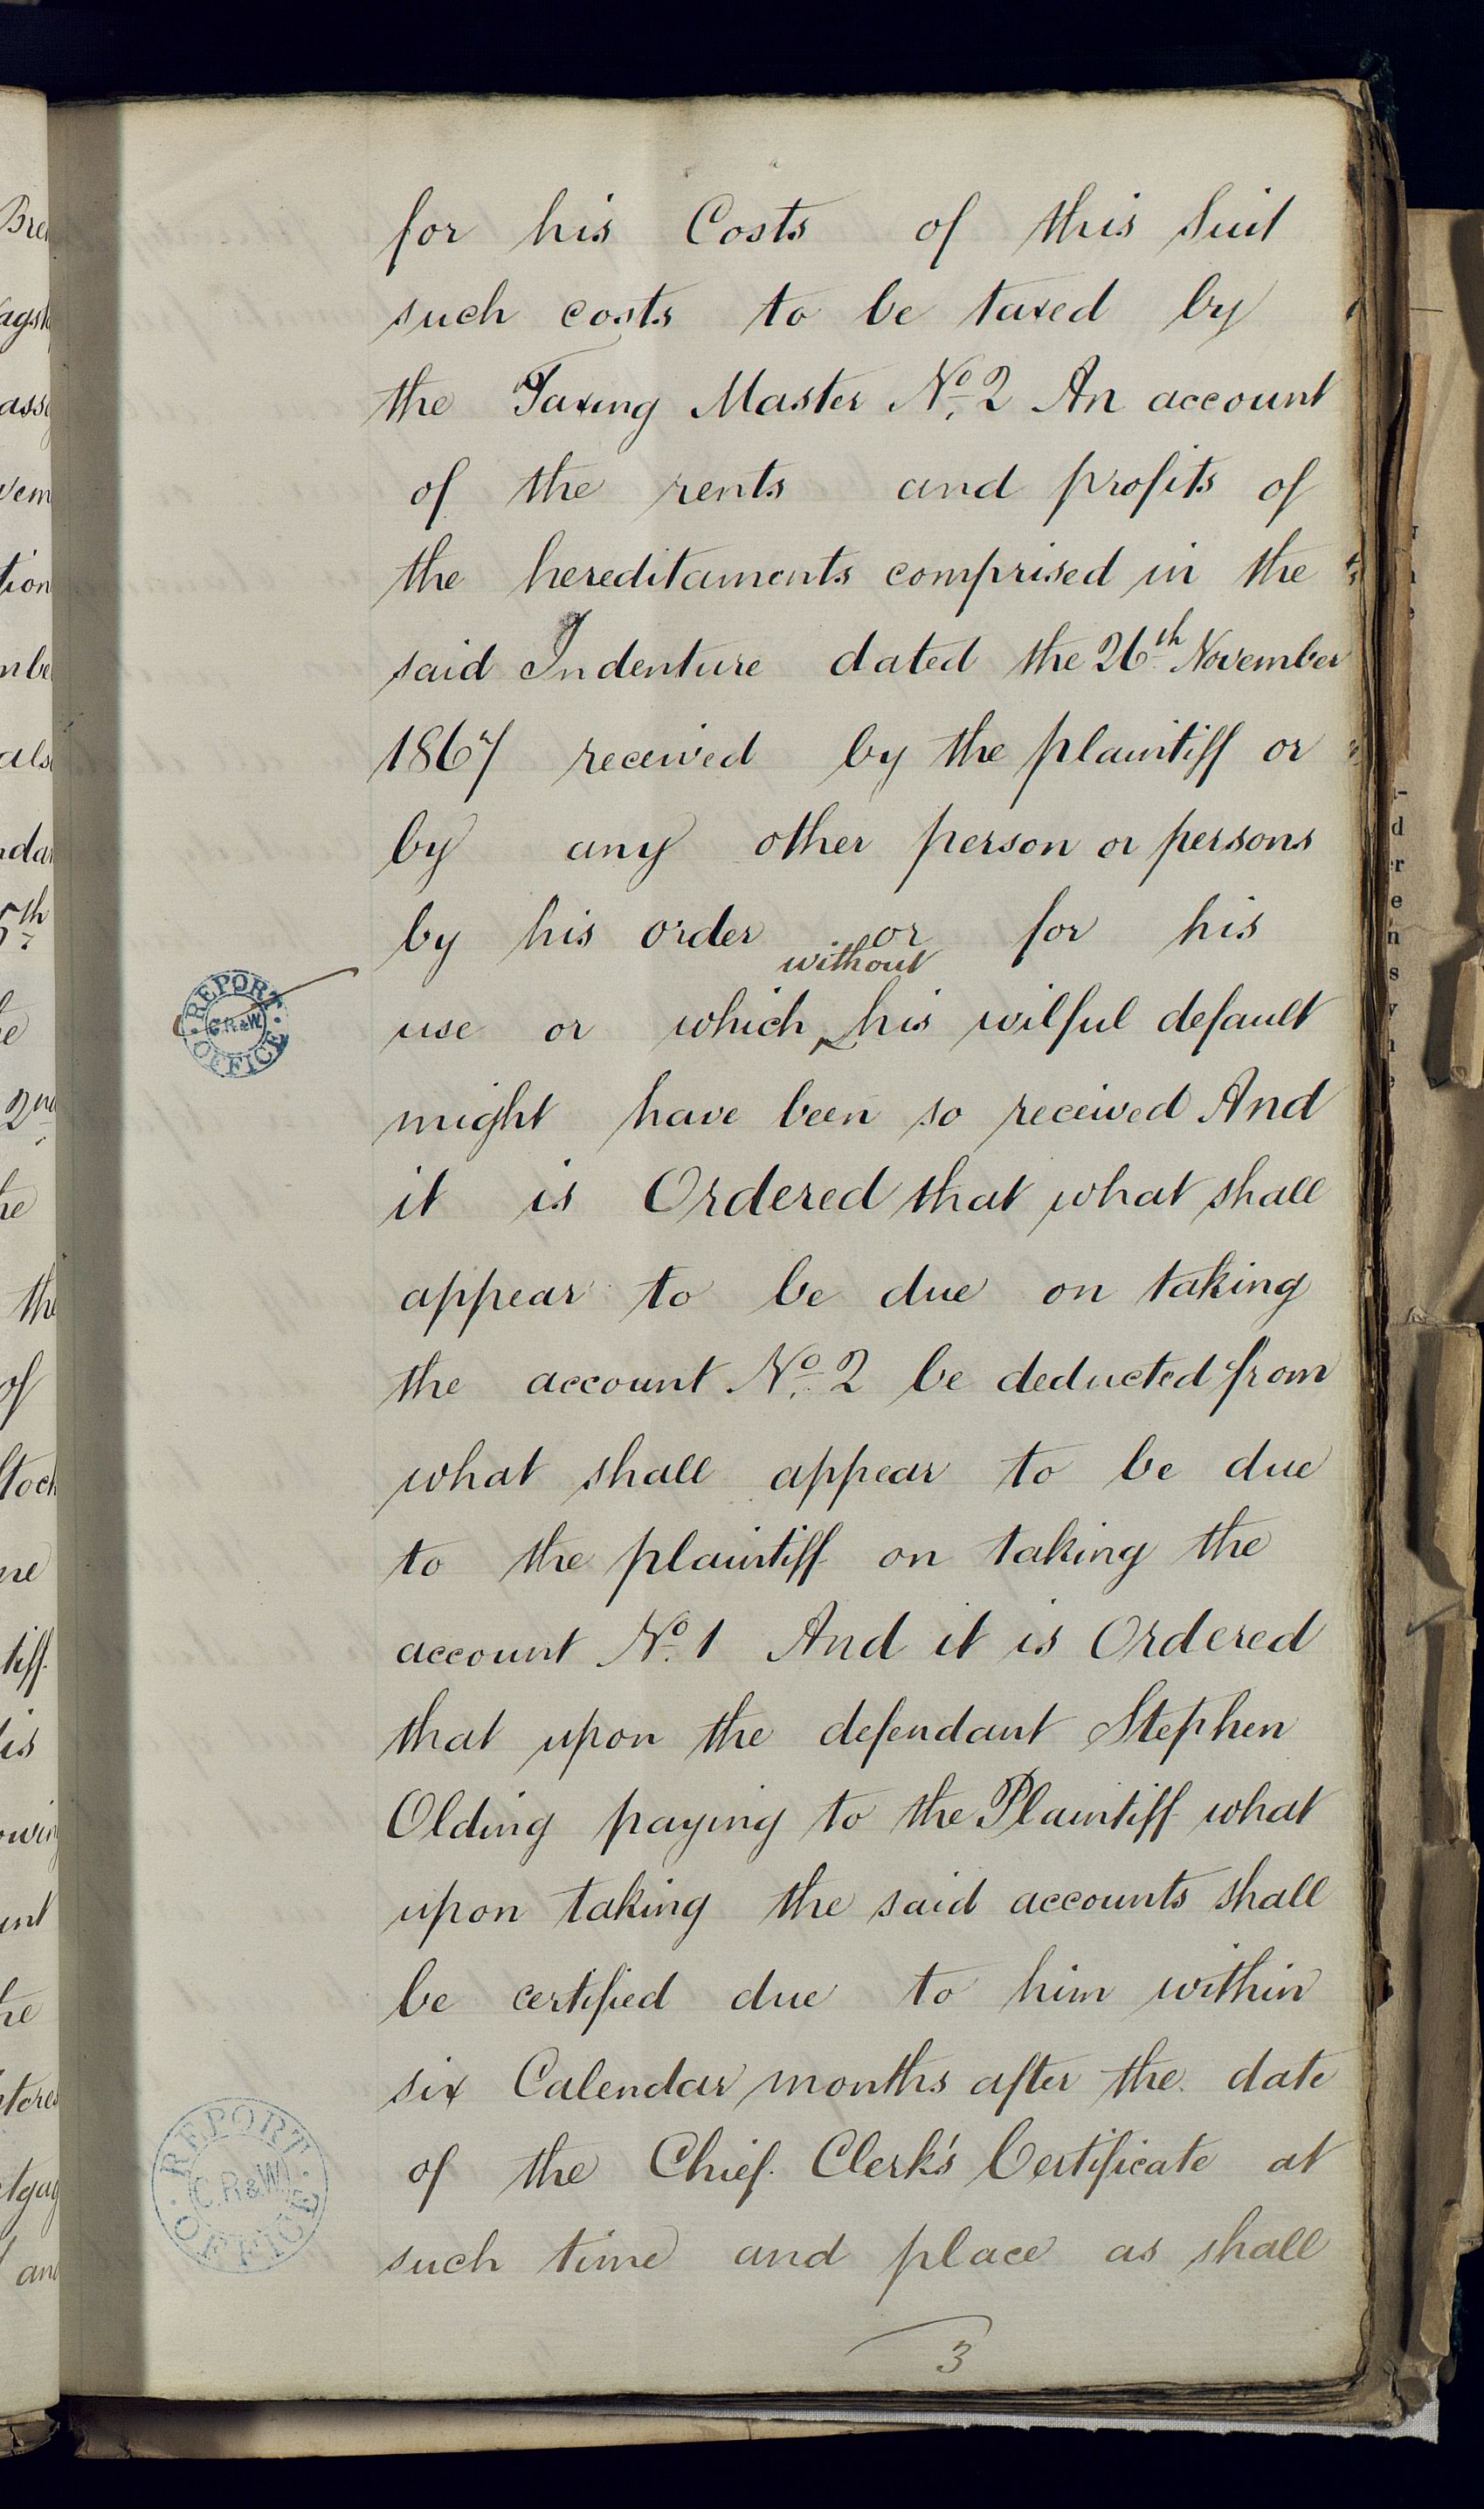 for his Costs of this Suit
such costs to be taxed by
the Taxing Master No. 2 An account
of the rents and profits of
the hereditaments comprised in the
said Indenture dated the 26th November
1867 received by the plaintiff or
by any other person or persons
by his order or for his
without
use or which his wilful default
might have been so received And
it is Ordered that what shall
appear to be due on taking
the account No. 2 be deducted from
what shall appear to be due
to the plaintiff on taking the
account No. 1 And it is Ordered
that upon the defendant Stephen
Olding paying to the Plaintiff what
upon taking the said accounts shall
be certified due to him within
six Calendar months after the date
of the Chief Clerk's Certificate at
such time and place as shall
3
REPORT OFFICE
C.R&W
REPORT OFFICE
C.R&W